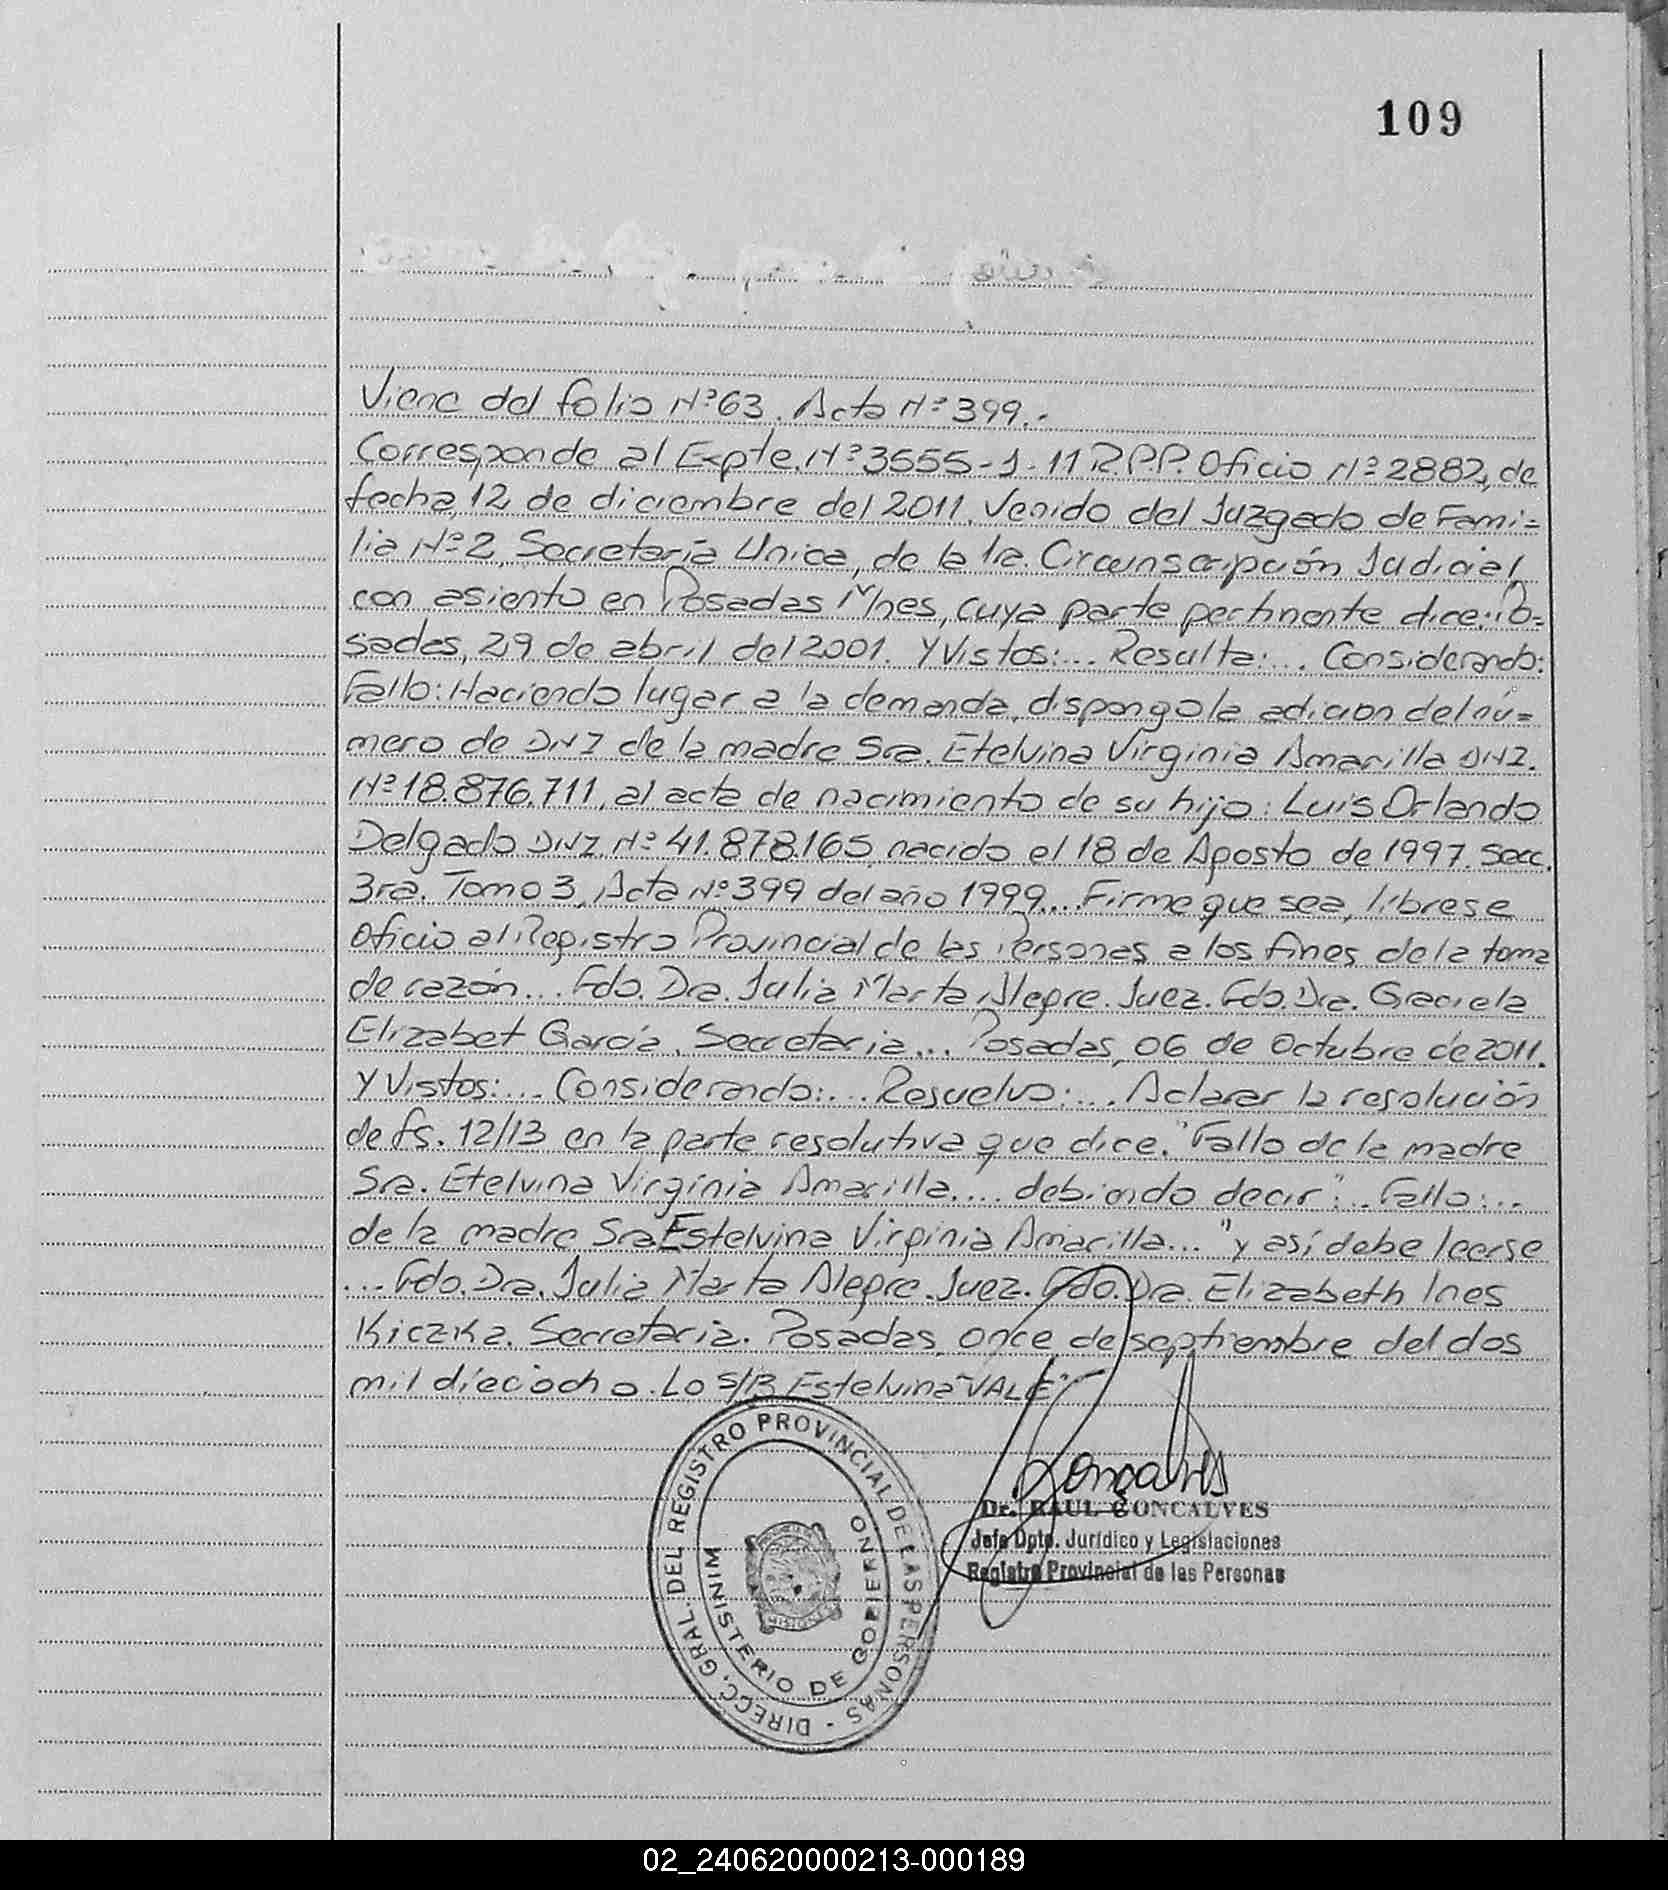 109
Viene del folio Nº63. Acta Nº399.-
Corresponde al Expte. Nº3555-J-11 R.P.P. Oficio Nº2882, de
fecha 12 de diciembre del 2011. Venido del Juzgado de Fami=
lia Nº2, Secretaría Unica, de la 1ra. Circunscripción Judicial
con asiento en Posadas Mnes, cuya parte pertinente dice: "Po=
sadas, 29 de abril del 2001. Y Vistos:... Resulta:... Considerando:
Fallo: Haciendo lugar a la demanda, dispongo la adicion del nú=
mero de DNI de la madre Sra. Etelvina Virginia Amarilla DNI.
Nº18.876.711, al acta de nacimiento de su hijo: Luis Orlando
Delgado DNI Nº 41.878.165, nacido el 18 de Agosto de 1997. Secc.
3ra. Tomo 3, Acta Nº399 del año 1999... Firme que sea, líbrese
oficio al Registro Provincial de las Personas a los fines de la toma
de razón... Fdo. Dra. Julia Marta Alegre. Juez. Fdo. Dra. Graciela
Elizabet García. Secretaria... Posadas, 06 de Octubre de 2011.
Y Vistos:... Considerando:... Resuelvo:... Aclarar la resolución
de fs. 12/13 en la parte resolutiva que dice. "Fallo de la madre
Sra. Etelvina Virginia Amarilla.... debiendo decir":.. Fallo:...
de la madre Sra Estelvina Virginia Amarilla... "y así debe leerse
... Fdo. Dra. Julia Marta Alegre. Juez. Fdo. Dra. Elizabeth Ines
Kiczka. Secretaria. Posadas, once de septiembre del dos
mil dieciocho. Lo S/R Estelvina "VALE"
DIRECC. GRAL. DEL REGISTRO PROVINCIAL DE LAS PERSONAS -
MINISTERIO DE GOBIERNO
Goncalves
Dr. RAUL GONCALVES
Jefe Dpto. Jurídico y Legislaciones
Registro Provincial de las Personas
02_240620000213-000189